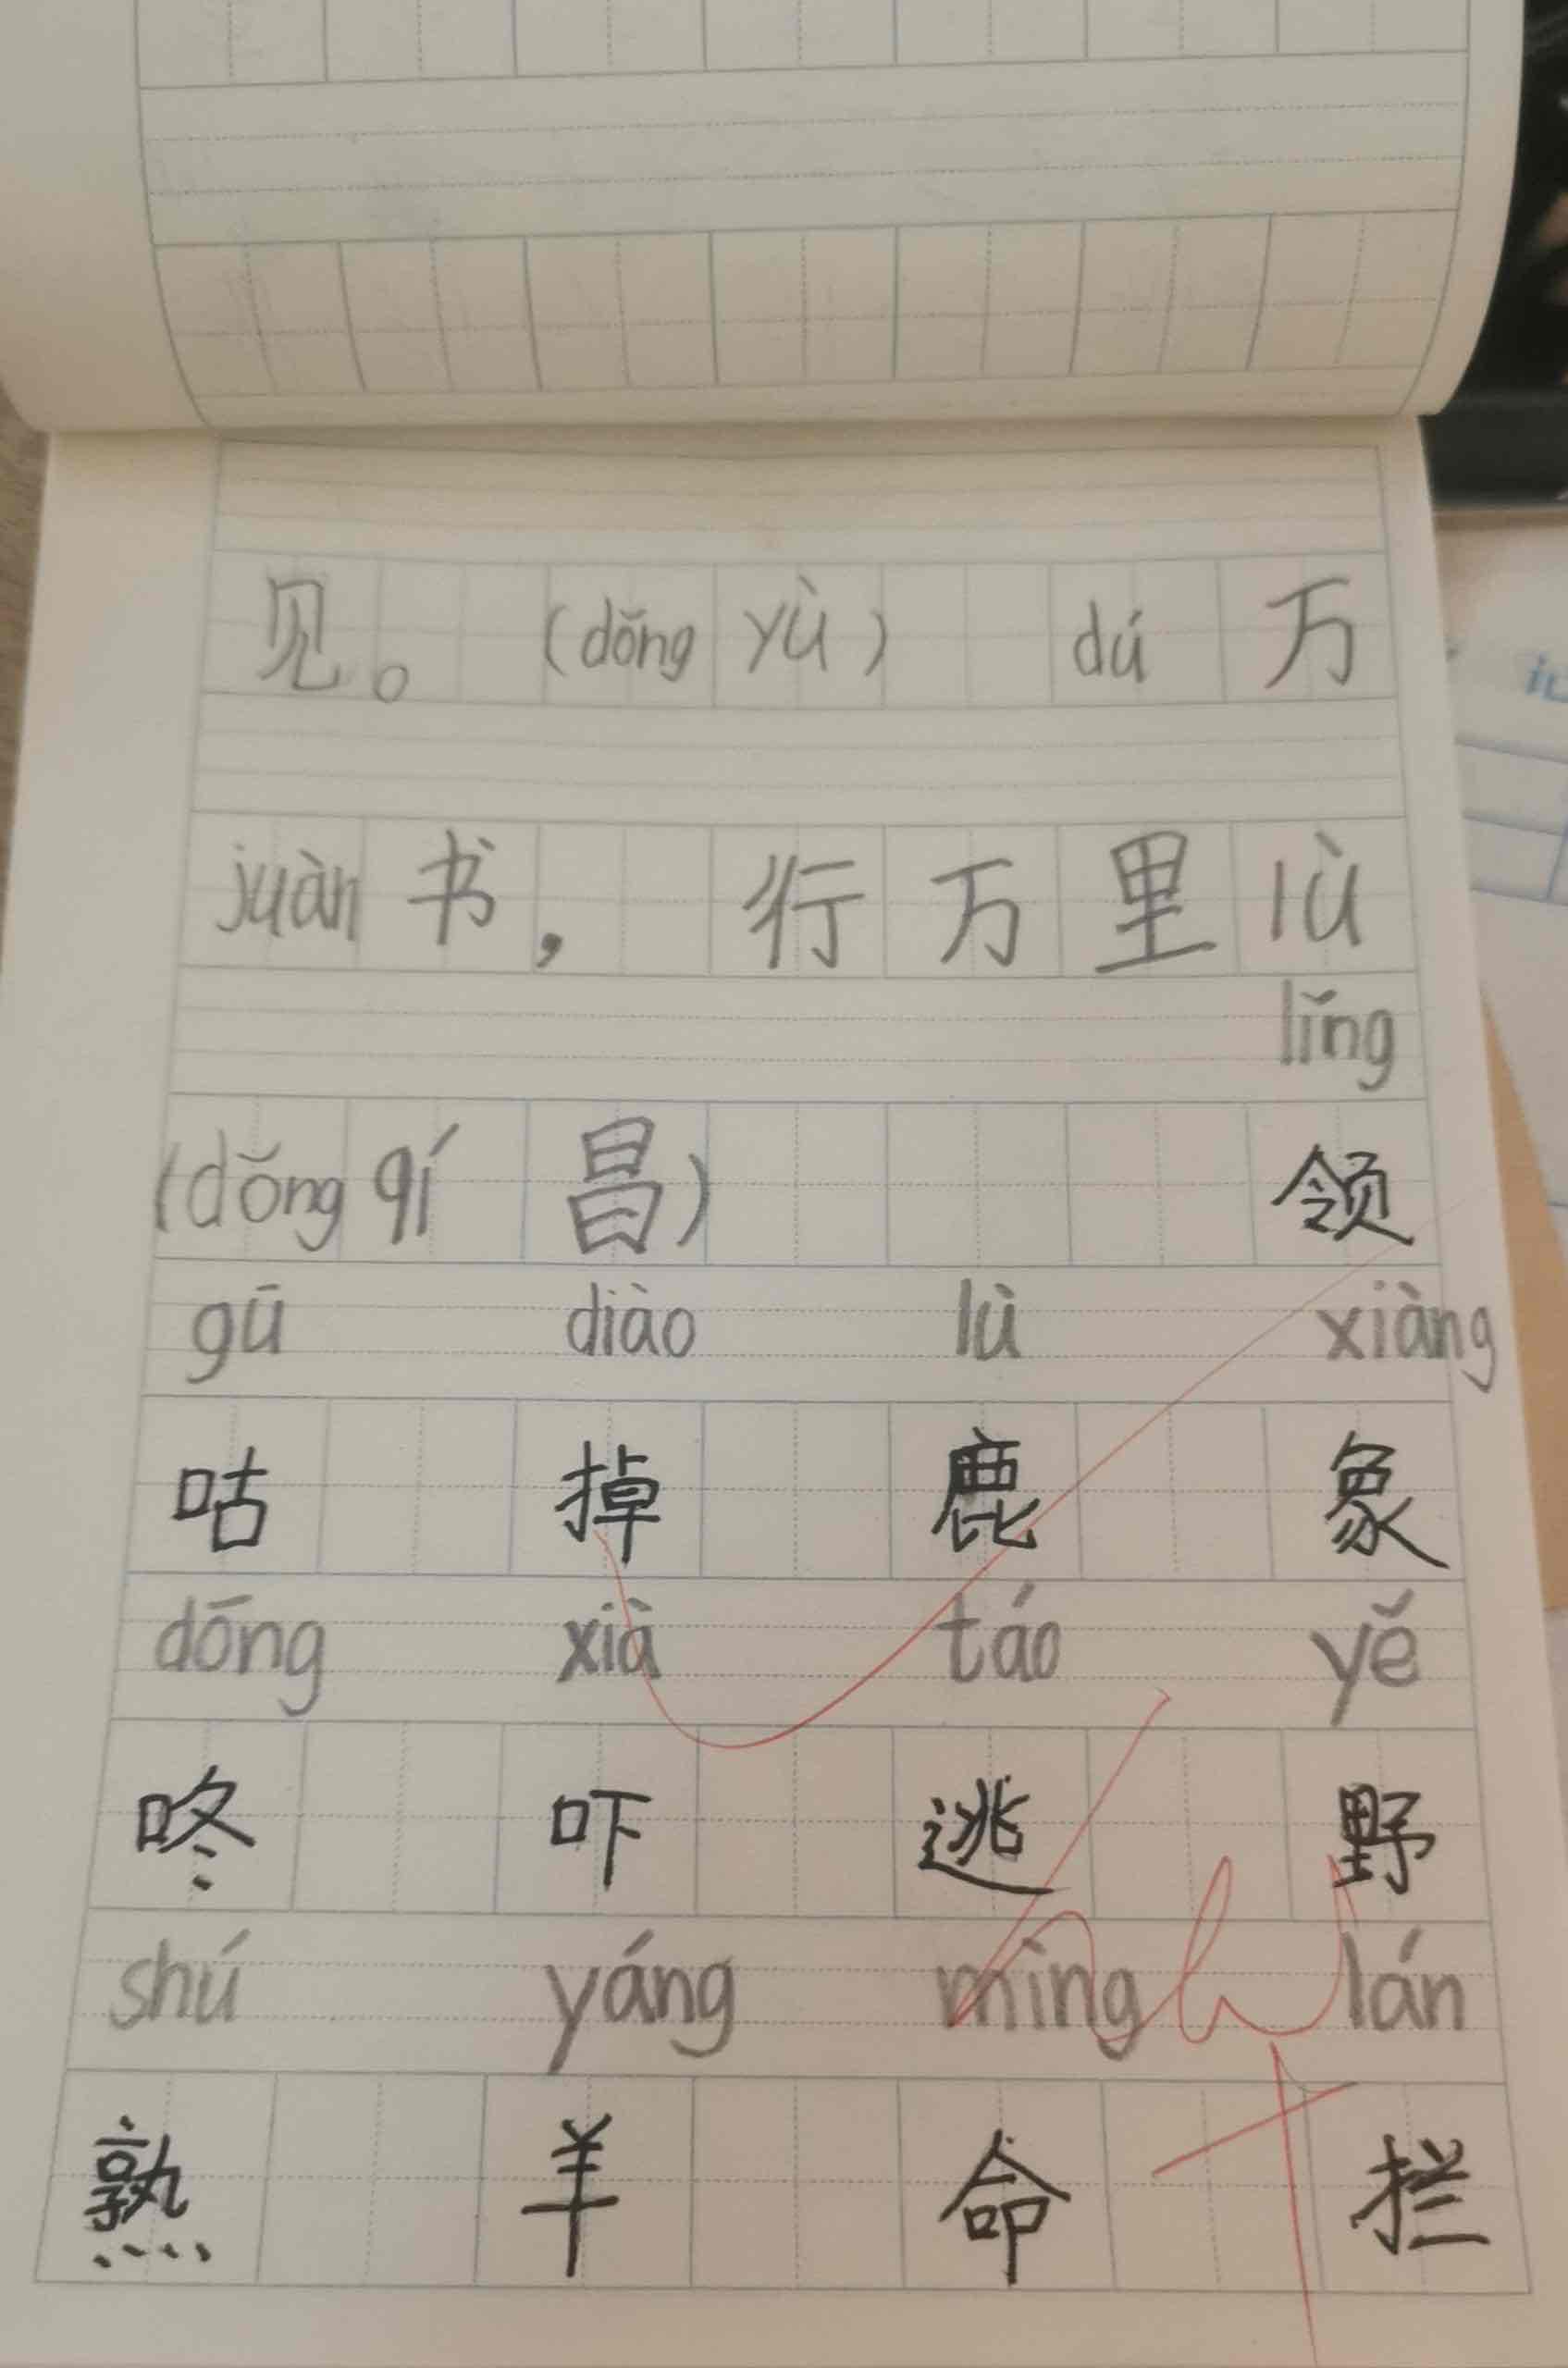 见。(dǒng yù) dú 万
juàn 书，行万里 lù
lǐng
(dǒng qí 昌) 领
gū diào lù xiàng
咕 掉 鹿 象
dōng xià táo yě
咚 吓 逃 野
shú yáng mìng lán
熟 羊 命 拦